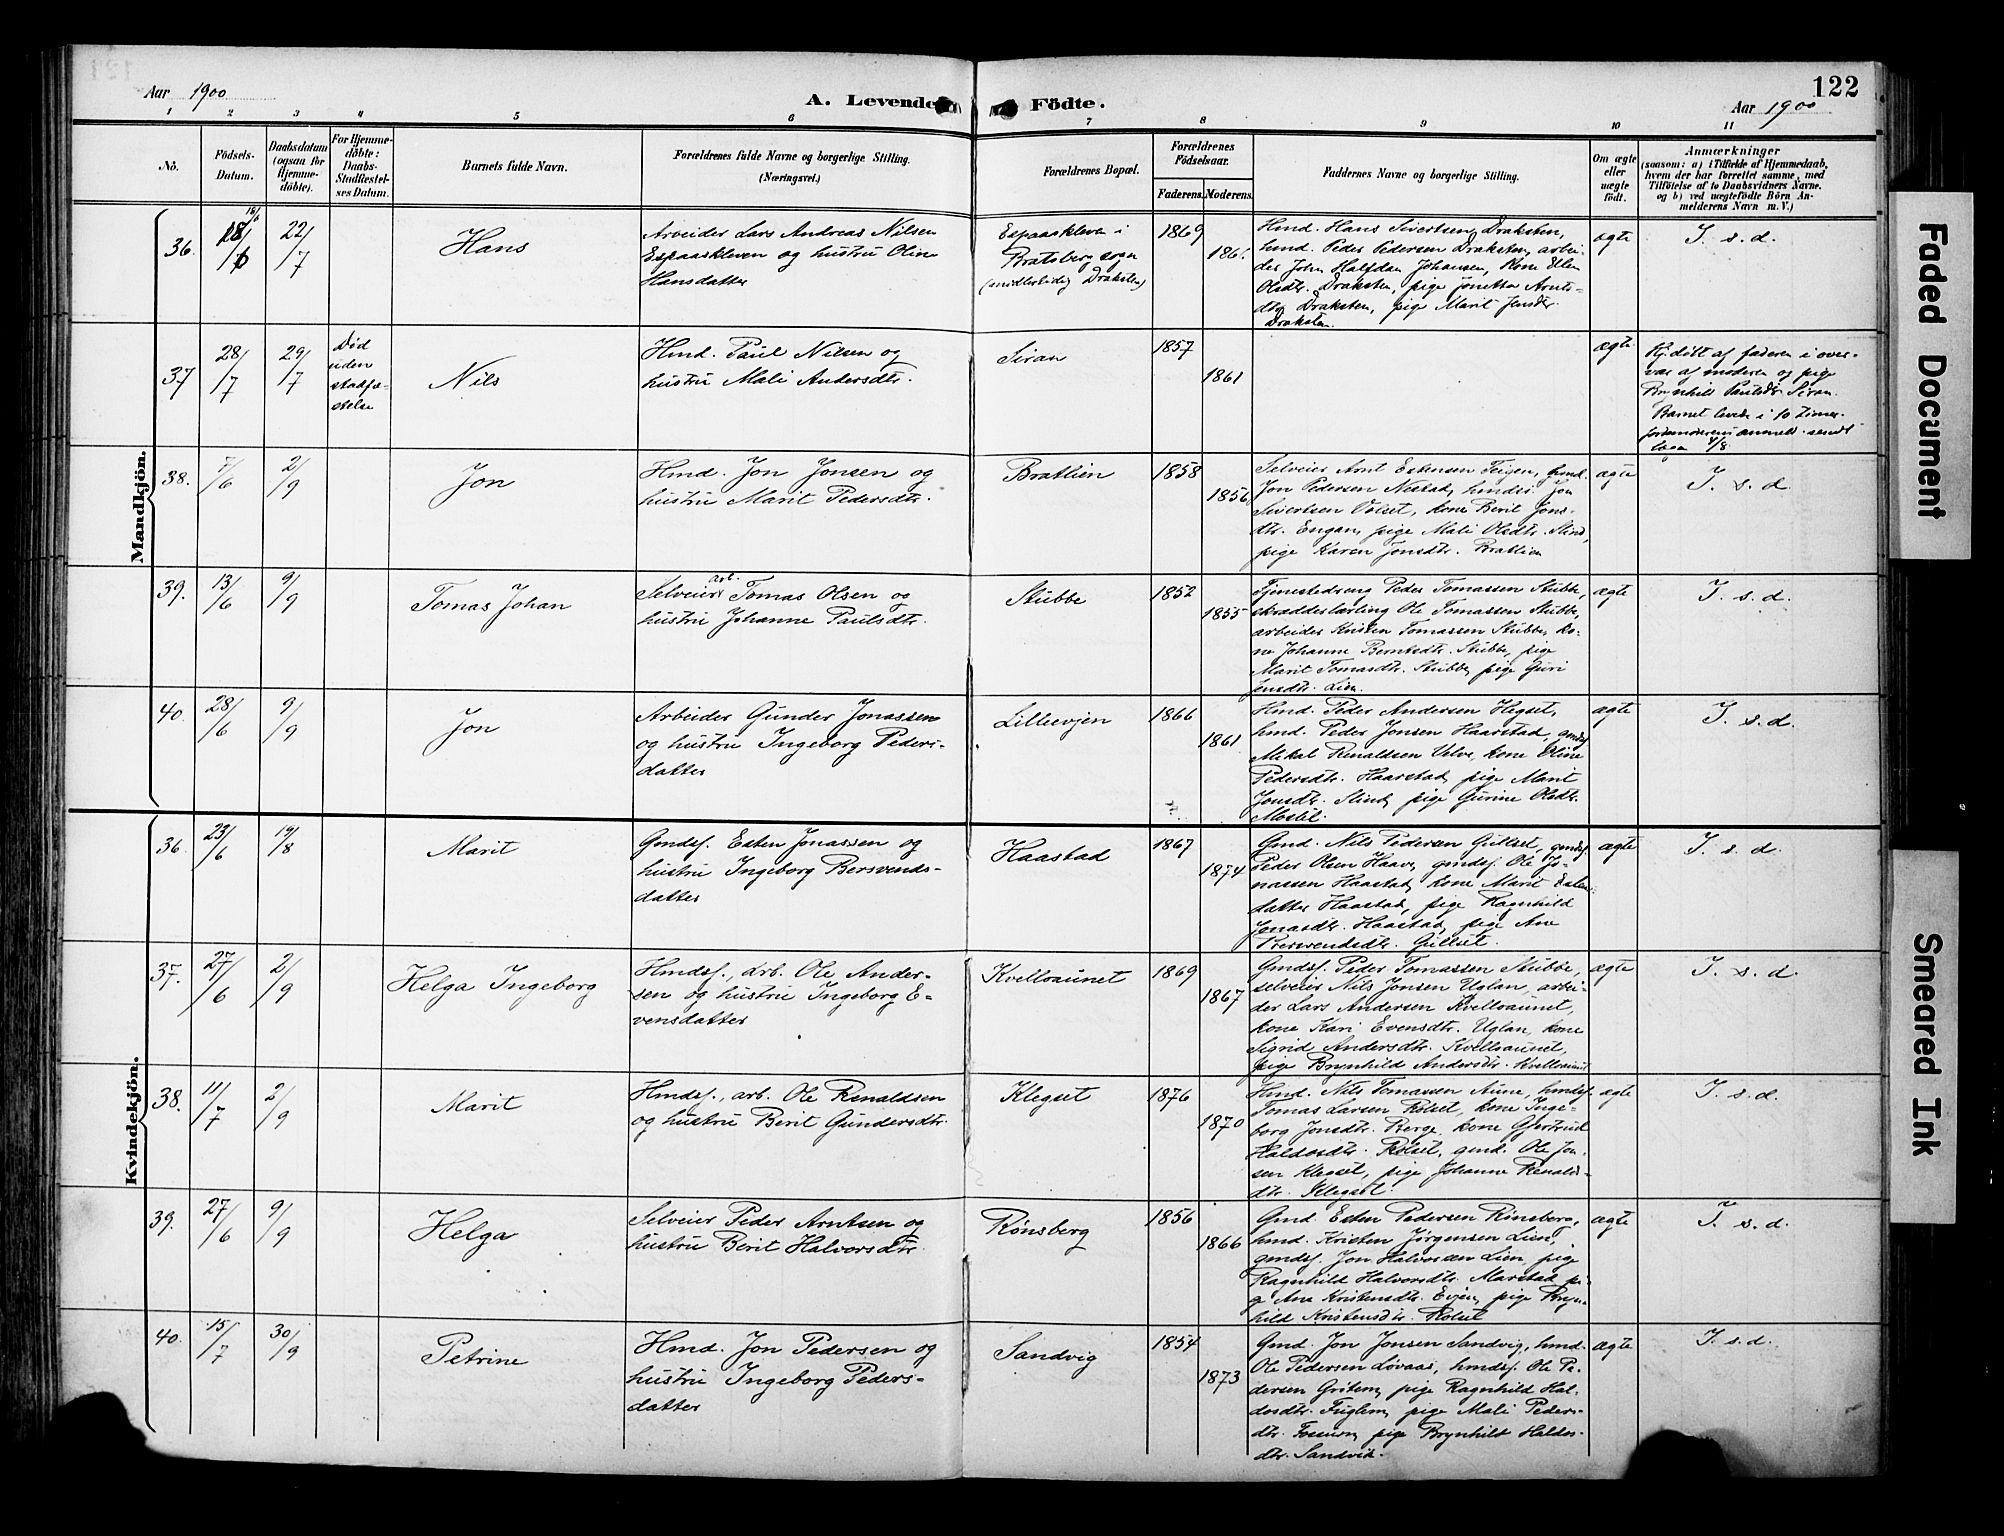 122
Aar 1900
A. Levende Födte.
Aar 1900
1 2 3 4 5 6 7 8 9 10 11
No.
Födsels-
Datum.
Daabsdatum
(ogsaa for
Hjemme-
döbte).
For Hjemme-
döbte:
Daabs-
Stadfæstel-
ses Datum.
Barnets fulde Navn.
Forældrenes fulde Navne og borgerlige Stilling.
(Næringsvei.)
Forældrenes Bopæl.
Forældrenes
Födselsaar.
Faderens. Moderens.
Faddernes Navne og borgerlige Stilling.
Om ægte
eller
uægte
født.
Anmærkninger
(saasom: a) i Tilfælde af Hjemmedaab,
hvem der har forrettet samme, med
Tilföielse af to Daabsvidners Navne.
og b) ved uægtefödte Börn An-
melderens Navn m. V.)
Mandkjön.
36.
18/6
22/7
Hans
Arbeider Lars Andreas Nilsen
Espaaskleven og hustru Oline
Hansdatter
Espaaskleven i
Bratsberg sogn
(midlertidig Draksten)
1869
Hmd. Hans Sivertsen Draksten,
hmd. Peder Pedersen Draksten, arbei-
der John Halfdan Johansen, kone Ellen
Olsdtr. Draksten, pige Jonetta Arnts-
dtr Draksten, pige Marit Jensdr.
Draksten.
ægte
I. s. d.
37
28/7
29/7
Død
uden
stadfæ-
stelse
Nils
Hmd. Paul Nilsen og
hustru Mali Andersdtr.
Siran
1857
1861
ægte
Hj. døbt af faderen i over-
vær af moderen og pige
Brynhild Paulsdr Siran.
Barnet levede i 10 timer.
4/8
38.
7/6
2/9
Jon
Hmd. Jon Jonsen og
hustru Marit Pedersdtr.
Bratlien
1858
1856
Selveier Arnt Estensen Teigen, hmd.
Jon Pedersen Nestad, hmdsr. Jon
Sivertsen Volset, kone Berit Jons-
dtr. Engan, pige Mali Olsdtr. Slind,
pige Karen Jonsdtr. Bratlien
ægte
I. s. d.
39.
13/6
9/9
Tomas Johan
Selveier arb. Tomas Olsen og
hustru Johanne Paulsdtr.
Stubbe
1852
1855
Tjenestedreng Peder Tomassen Stubbe,
skrædderlærling Ole Tomassen Stubbe,
arbeider Kristen Tomassen Stubbe, ko-
ne Johanne Berntsdtr. Stubbe, pige
Marit Tomasdtr. Stubbe, pige Guri
Jensdtr. Lien.
ægte
I. s. d.
40.
28/6
9/9
Jon
Arbeider Gunder Jonassen
og hustru Ingeborg Peders-
datter
Lilleevjen
1866
1861
Hmd. Peder Andersen Hegset,
hmd. Peder Jonsen Haarstad, gmdsf.
Mikal Renaldsen Velve, kone Oline
Pedersdtr. Haarstad, pige Marit
Jonsdtr. Slind, pige Gurine Olsdtr.
Moslit.
ægte
I. s. d.
Kvindekjön.
36.
23/6
19/8
Marit
Gmdsf. Esten Jonassen og
hustru Ingeborg Bersvends-
datter
Haastad
1867
1874
Gmd. Nils Pedersen Gullset, gmdsf.
Peder Olsen Haave, gmdsf. Ole Jo-
nassen Haastad, kone Marit Esten-
datter Haastad, pige Ragnhild
Jonasdtr. Haastad, pige Ane
Bersvendsdtr. Gullset.
ægte
I. s. d.
37.
27/6
2/9
Helga Ingeborg
Hmdsf., arb. Ole Ander-
sen og hustru Ingeborg E-
vensdatter
Kvelloaunet
1869
1867
Gmdsf. Peder Tomassen Stubbe,
selveier Nils Jonsen Uglan, arbei-
der Lars Andersen Kvelloaunet,
kone Kari Evensdtr. Uglan, kone
Sigrid Andersdtr. Kvelloaunet,
pige Brynhild Andersdtr. Kvelloaunet
ægte
I. s. d.
38.
11/7
2/9
Marit
Hmdsf., arb. Ole Renaldsen
og hustru Berit Gundersdtr.
Klegset
1876
1870
Hmd. Nils Tomassen Aune, hmdsf.
Tomas Larsen Rolset, kone Inge-
borg Jonsdtr. Berge, kone Gjertrud
Haldosdtr. Rolset, gmd. Ole Jon-
sen Klegset, pige Johanne Renalds-
dtr. Klegset.
ægte
I. s. d.
39.
27/6
9/9
Helga
Selveier Peder Arntsen og
hustru Berit Halvorsdtr.
Rønsberg
1856
1866
Gmd. Esten Pedersen Rønsberg,
hmd. Kristen Jörgensen Lien,
gmdsf. Jon Halvorsen Lien, pige
Ragnhild Halvorsdtr. Marstad, pi-
ge Ane Kristensdtr. Evjen, pige Bryn-
hild Kristensdtr. Rolset
ægte
I. s. d.
40.
15/7
30/9
Petrine
Hmd. Jon Pedersen og
hustru Ingeborg Peders-
datter
Sandvig
1854
1873
Gmd. Jon Jonsen Sandvig, hmd.
Ole Pedersen Løvaas, hmdsf. Ole Pe-
dersen Gritem, pige Ragnhild Hal-
dosdtr. Fuglem, pige Mali Peders-
dtr. Fossum, pige Brynhild Haldos-
dtr. Sandvik.
ægte
I. s. d.
Faded Document
Smeared Ink